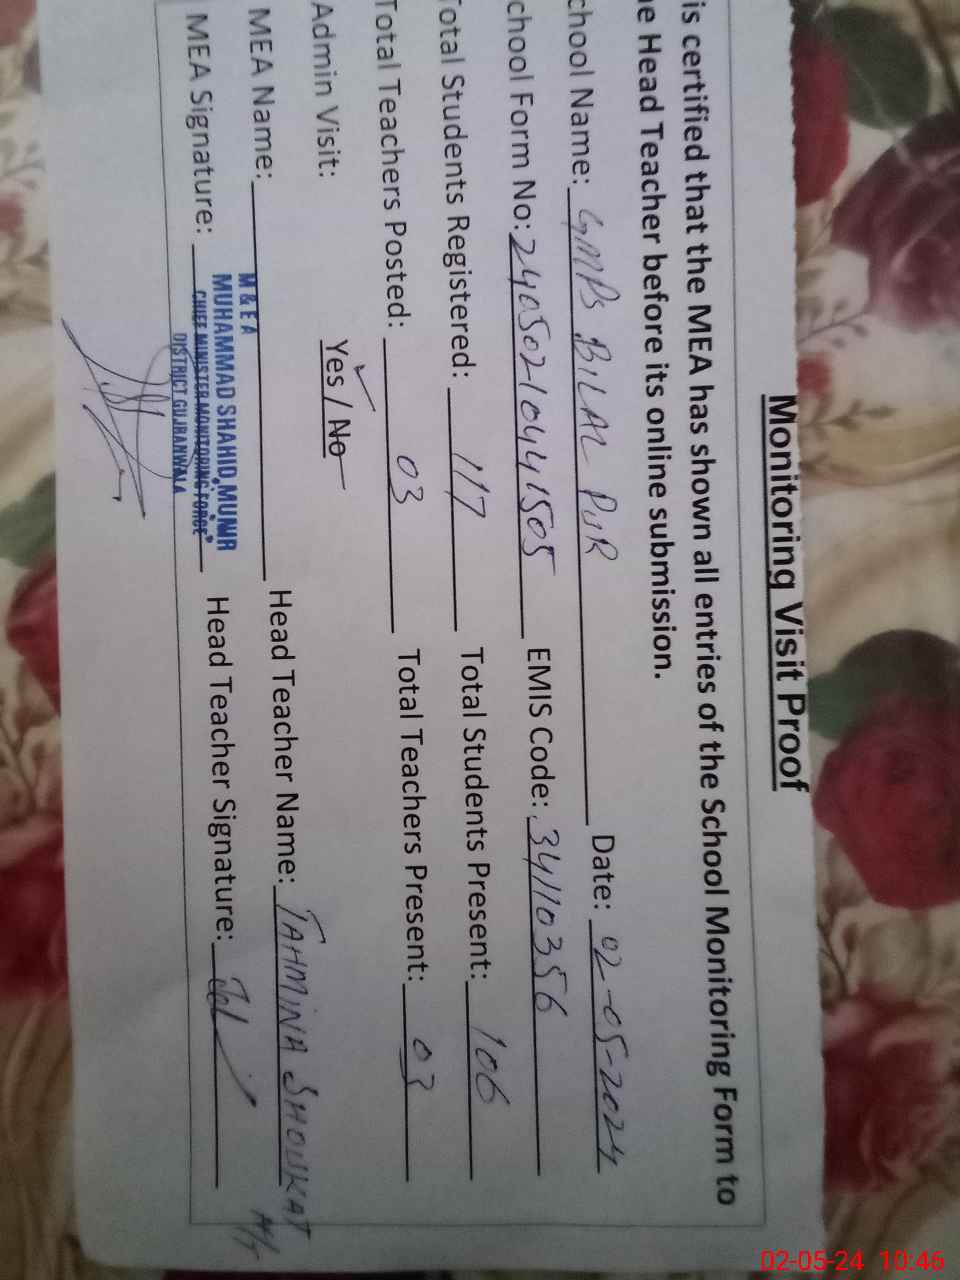 Monitoring Visit Proof
is certified that the MEA has shown all entries of the School Monitoring Form to
e Head Teacher before its online submission.
chool Name: GMPS BILAL PUR Date: 02-05-2024
chool Form No: 24050210441505 EMIS Code: 34110356
Total Students Registered: 117 Total Students Present: 106
Total Teachers Posted: 03 Total Teachers Present: 03
Admin Visit: Yes / No
MEA Name: Head Teacher Name: TAHMINA SHOUKAT
M & E A
MUHAMMAD SHAHID MUNIR
CHIEF MINISTER MONITORING FORCE
DISTRICT GUJRANWALA
MEA Signature: Head Teacher Signature:
02-05-24 10:46